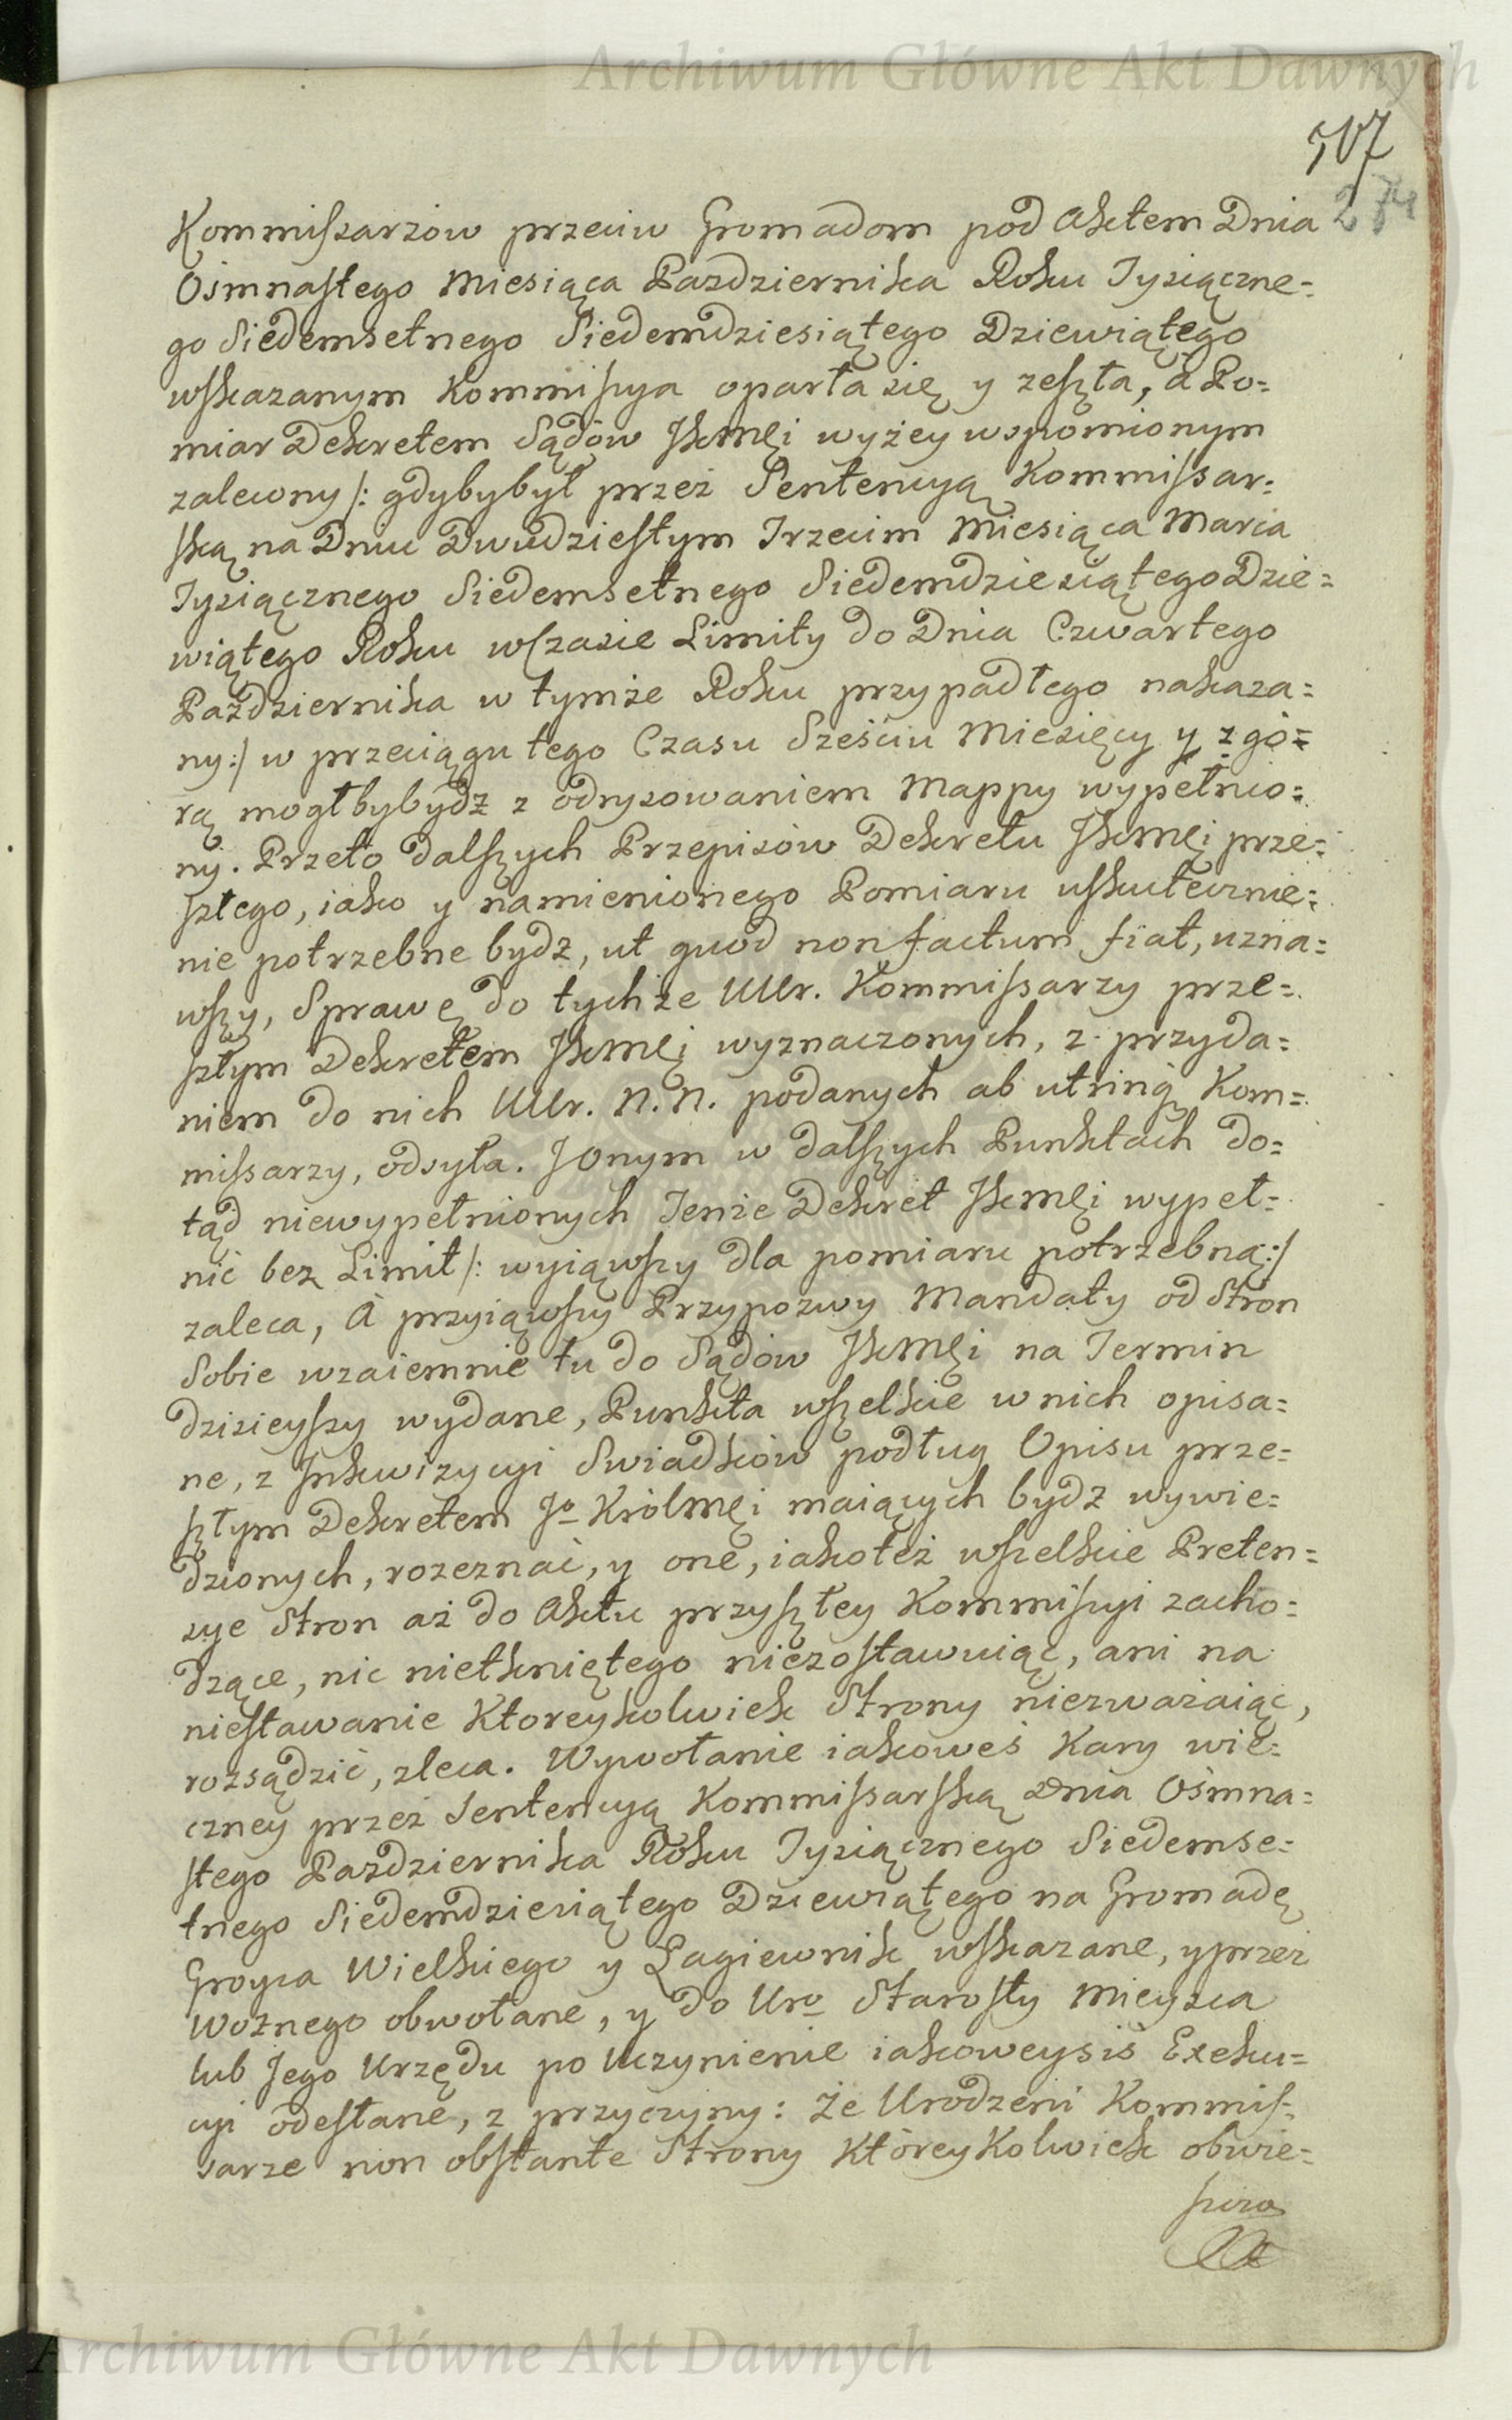 Archiwum Główne Akt Dawnych
507
274
Kommissarzow przeciw Gromadom pod Aktem Dnia
Osmnastego Miesiąca Pazdziernika Roku Tysiączne=
go Siedemsetnego Siedemdziesiątego Dziewiątego
wskazanym Kommissya oparta się y zeszła, a Po=
miar Dekretem Sądów JKMci wyżey wspomionym
zalecony /: gdybybył przez Sentencyą Kommissar=
ską na Dniu Dwudziestym Trzecim Miesiąca Marca
Tysiącznego Siedemsetnego Siedemdziesiątego Dzie=
wiątego Roku w Czasie Limity do Dnia Czwartego
Pazdziernika w tymże Roku przypadłego nakaza=
ny :/ w przeciągu tego Czasu Sześciu Miesięcy y z gó=
rą mogłbybydz z odrysowaniem Mappy wypełnio=
ny. Przeto dalszych Przepisów Dekretu JKMci prze=
szłego, iako y namienionego Pomiaru uskutecznie=
nie potrzebne bydz, ut quod non factum fiat, uzna=
wszy, Sprawę do tychże UUr. Kommissarzy prze=
szłym Dekretem JKMci wyznaczonych, z przyda=
niem do nich UUr. N. N. podanych ab utrinq Kom=
missarzy, odsyła. J Onym w dalszych Punktach do=
tąd niewypełnionych Tenże Dekret JKMci wypeł=
nić bez Limit /: wyiąwszy dla pomiaru potrzebną :/
zaleca, A przyiąwszy Przypozwy Mandaty od Stron
Sobie wzaiemnie tu do Sądów JKMci na Termin
dzisieyszy wydane, Punkta wszelkie w nich opisa=
ne, z Jnkwizycyi Swiadków podług Opisu prze=
szłym Dekretem Jo KrólMci maiących bydz wywie=
dzionych, rozeznać, y one, iakoteż wszelkie Preten=
sye Stron aż do Aktu przyszłey Kommissyi zacho=
dzące, nic nietkniętego niezostawuiąc, ani na
niestawanie Ktoreykolwiek Strony niezważaiąc,
rozsądzić, zleca. Wywołanie iakoweś Kary wie=
czney przez Sentencyą Kommissarską Dnia Osmna=
stego Pazdziernika Roku Tysiącznego Siedemse=
tnego Siedemdziesiątego Dziewiątego na Gromadę
Groyca Wielkiego y Łagiewnik wskazane, y przez
Woźnego obwołane, y do Uro Starosty Mieysca
lub Jego Urzędu po Uczynienie iakoweysis Exeku=
cyi odesłane, z przyczyny: że Urodzeni Kommis=
sarze non obstante Strony Któreykolwiek obwie=
szcza
Archiwum Główne Akt Dawnych